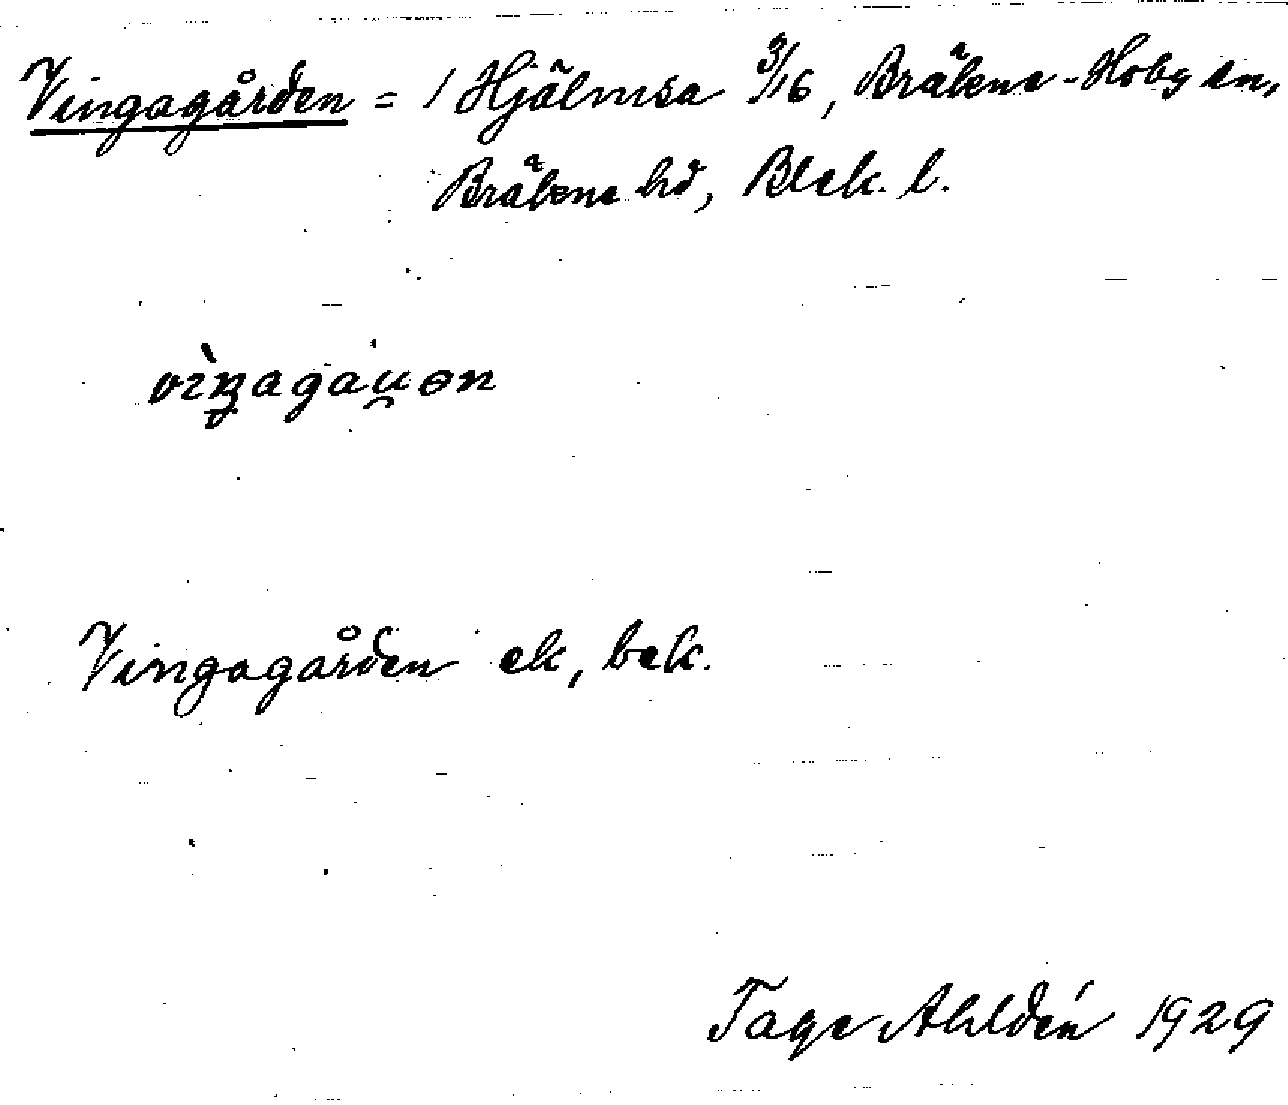 Vingagården = / Hjälmsa 3/16, Bräkne-Hoby sn,
Bräkne hd, Blek. l.
Vingagården ek, bek.
Tage Ahldén 1929